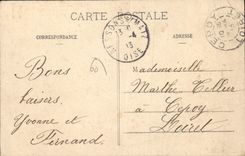 CARTE POSTALE
CORRESPONDANCE
ADRESSE
13
OISE
Bons
baisers,
Yvonne et
Fernand
Mademoiselle
Marthe Tellier
à Cepoy
Loiret